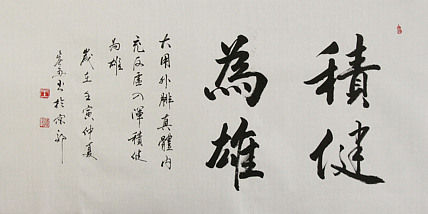 積健
為雄
大用外腓真體内
充返虛入渾積健
為雄
歲在壬寅仲夏
書於京郊